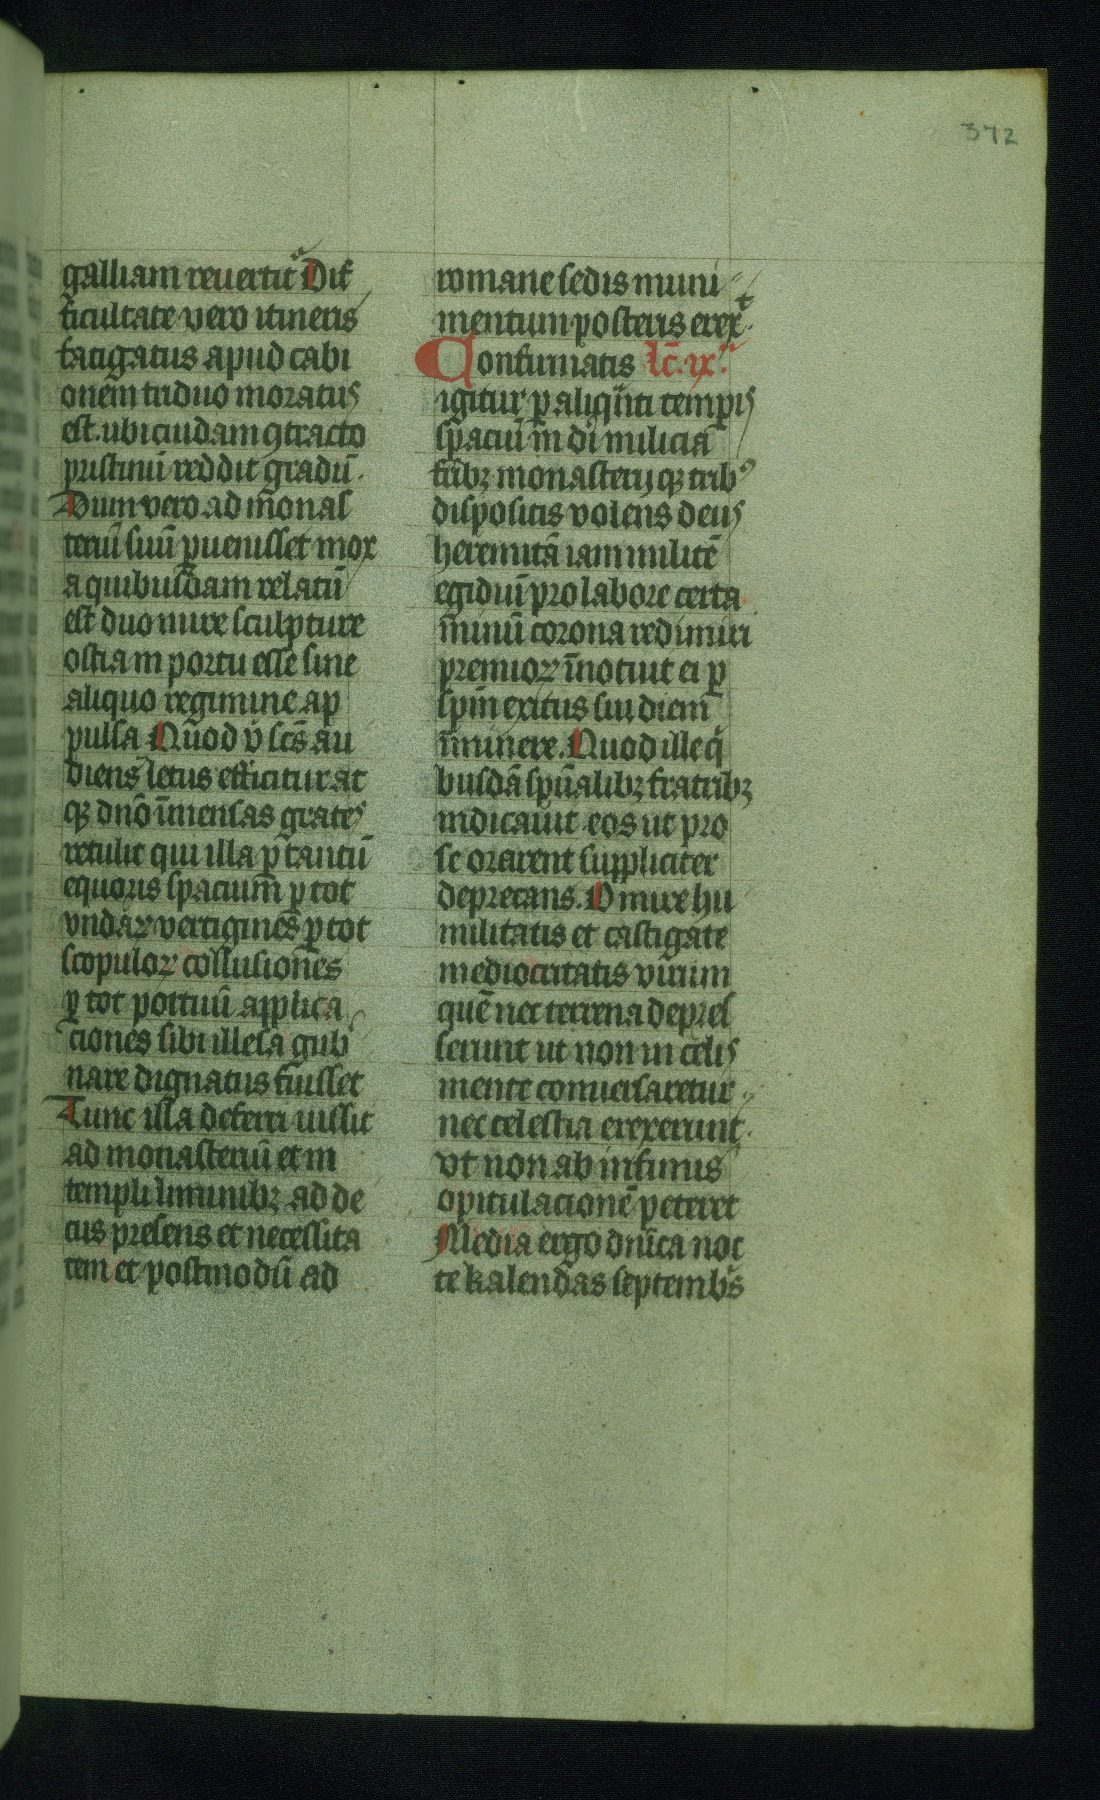 372
galliam reuertit᷑ Dif
ficultate vero itineris
fatigatus apud cabi
onem triduo moratus
est. ubi cuidam ꝯtracto
pristinū reddit gradū.
Dum vero ad monas
teriū suū ꝑuenisset mox
a quibusdam relatū
est duo mire sculpture
ostia in portu esse sine
aliquo regimine ap
pulsa Quod v̄ sc̄s au
diens letus efficitur at
qꝫ dn̄o īmensas grates
retulit qui illa ꝑ tantū
equoris spacium ꝑ tot
vndaꝝ vertigines ꝑ tot
scopuloꝝ collusiones
ꝑ tot portuū applica
ciones sibi illesa gub̄
nare dignatus fuisset
Tunc illa deferri iussit
ad monasteriū et in
templi liminibꝫ ad de
cus presens et necessita
tem et postmodū ad
romane sedis muni
mentum posteris erexͭ.
Confirmatis lc̄. ix.ᵃ
igitur ꝑ aliqᵃnti tempis
spaciū in di milicia
frībꝫ monasterijqꝫ tribꝰ
dispositis volens deus
heremitā iam militē
egidiū pro labore certa
minū corona redimiri
premioꝝ īnotuit ei ꝑ
spm̄ exitus sui diem
īminere. Quod ille qͥ
busdā spūalibꝫ fratribꝫ
indicauit eos ut pro
se orarent suppliciter
deprecans. O mire hu
militatis et castigate
mediocritatis virum
quē nec terrena depres
serunt ut non in celis
mente conuersaretur
nec celestia erexerunt.
vt non ab infimis
opitulacionē peteret
Media ergo dn̄ica noc
te kalendas septembͥs